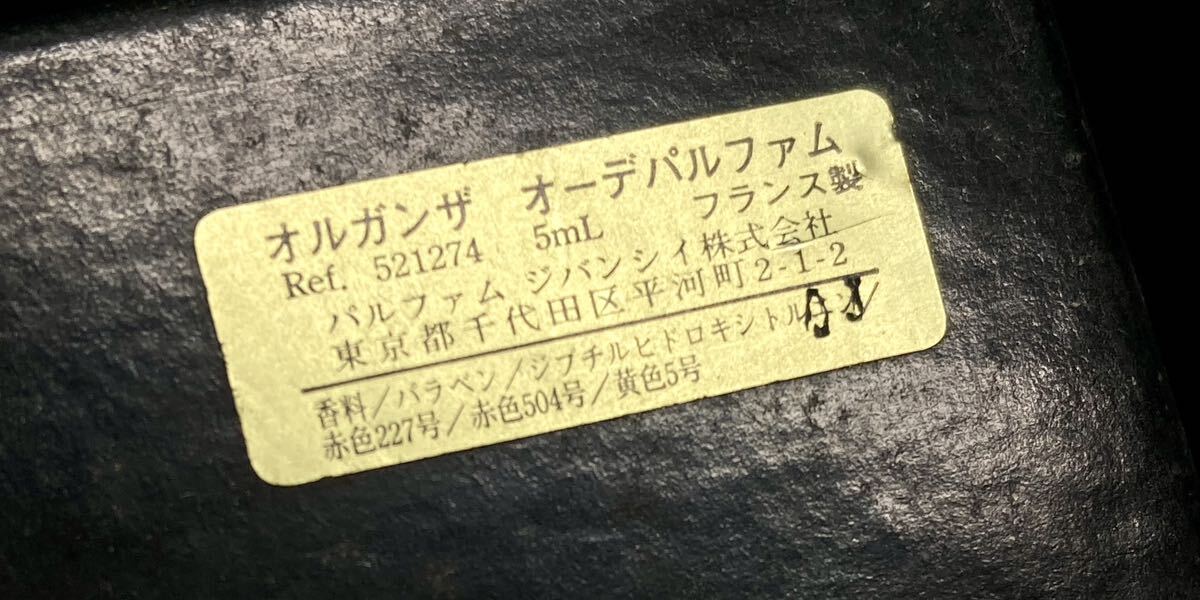 オルガンザ オーデパルファム
Ref. 521274 5mL フランス製
パルファム ジバンシイ株式会社
東京都千代田区平河町2-1-2
香料/パラベン/ジブチルヒドロキシトルエン/
赤色227号/赤色504号/黄色5号